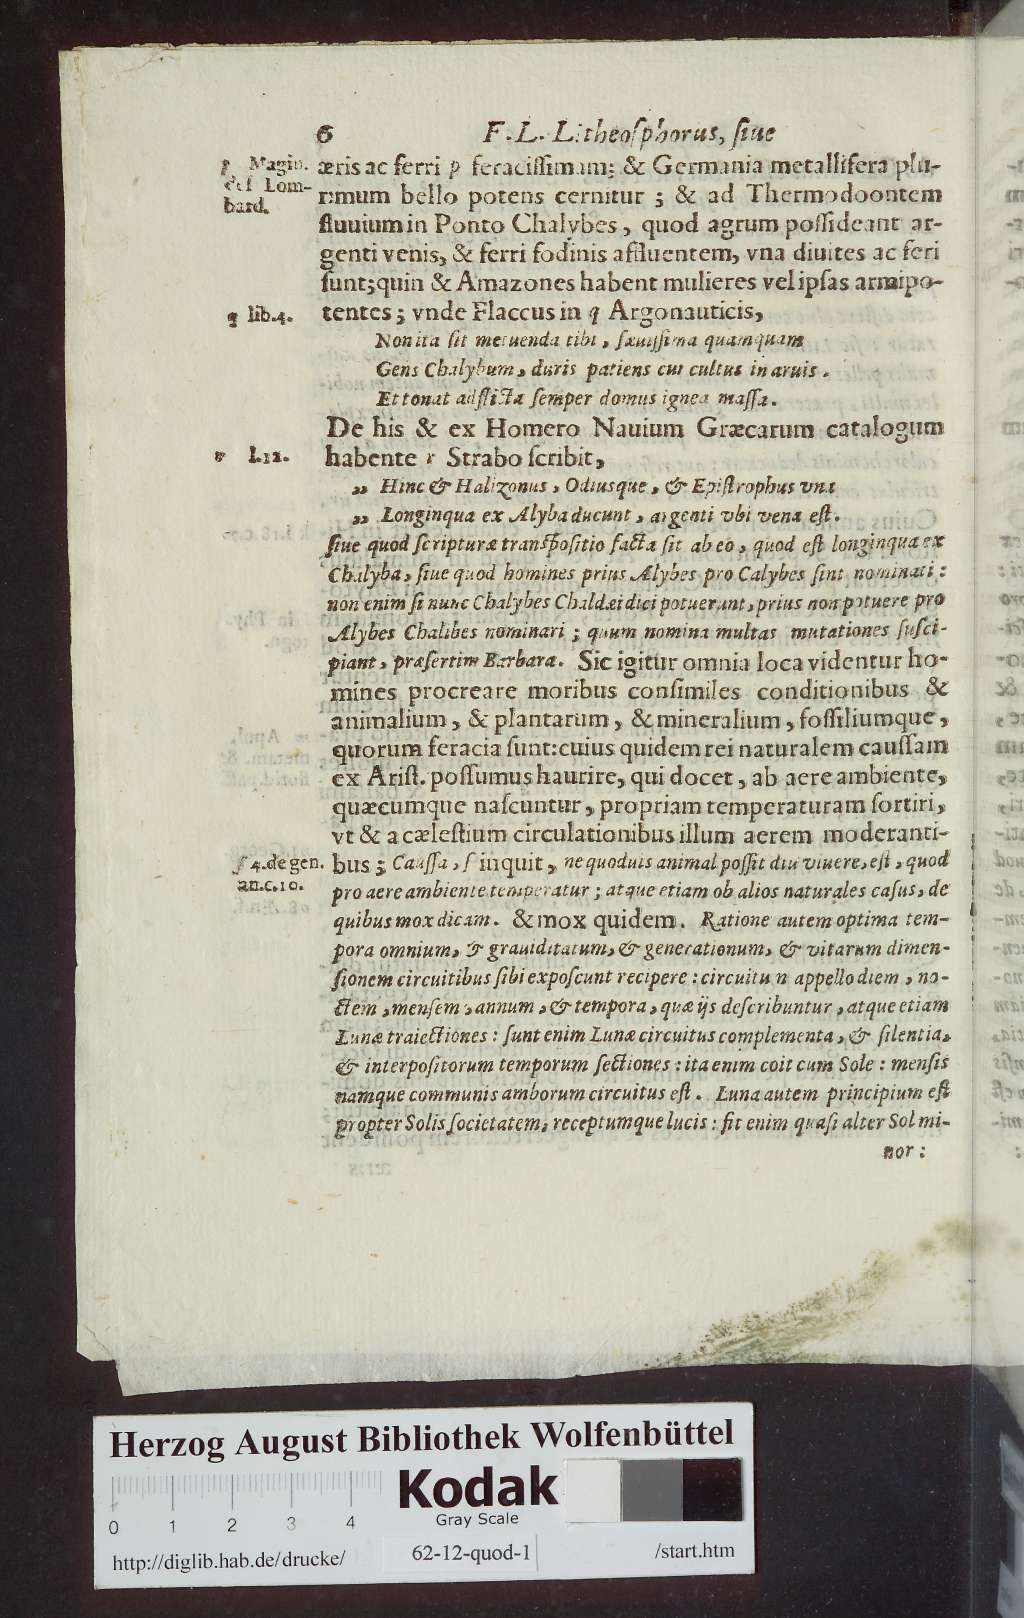 6 F. L. Litheosphorus, siue
p Magin. æris ac ferri p feracissimam; & Germania metallifera plu-
del Lom- rimum bello potens cernitur; & ad Thermodoontem
bard. fluuium in Ponto Chalybes, quod agrum possideant ar-
genti venis, & ferri fodinis affluentem, vna diuites ac feri
sunt; quin & Amazones habent mulieres vel ipsas armipo-
q lib. 4. tentes; vnde Flaccus in q Argonauticis,
Non ita sit metuenda tibi, sæuissima quamquam
Gens Chalybum, duris patiens cui cultus in aruis.
Et tonat adflicta semper domus ignea massa.
De his & ex Homero Nauium Græcarum catalogum
r l. 12. habente r Strabo scribit,
„ Hinc & Halizonus, Odiusque, & Epistrophus vna
„ Longinqua ex Alyba ducunt, argenti vbi vena est.
siue quod scripturæ transpositio facta sit ab eo, quod est longinqua ex
Chalyba, siue quod homines prius Alybes pro Calybes sint nominati:
non enim si nunc Chalybes Chaldæi dici potuerunt, prius non potuere pro
Alybes Chalibes nominari; quum nomina multas mutationes susci-
piant, præsertim Barbara. Sic igitur omnia loca videntur ho-
mines procreare moribus consimiles conditionibus &
animalium, & plantarum, & mineralium, fossiliumque,
quorum feracia sunt: cuius quidem rei naturalem caussam
ex Arist. possumus haurire, qui docet, ab aere ambiente,
quæcumque nascuntur, propriam temperaturam sortiri,
vt & a cælestium circulationibus illum aerem moderanti-
ſ 4. de gen. bus; Caussa, ſ inquit, ne quoduis animal possit diu viuere, est, quod
an. c. 10. pro aere ambiente temperatur; atque etiam ob alios naturales casus, de
quibus mox dicam. & mox quidem. Ratione autem optima tem-
pora omnium, & grauiditatum, & generationum, & vitarum dimen-
sionem circuitibus sibi exposcunt recipere: circuitum appello diem, no-
ctem, mensem, annum, & tempora, quæ ijs describuntur, atque etiam
Lunæ traiectiones: sunt enim Lunæ circuitus complementa, & silentia,
& interpositorum temporum sectiones: ita enim coit cum Sole: mensis
namque communis amborum circuitus est. Luna autem principium est
propter Solis societatem, receptumque lucis: fit enim quasi alter Sol mi-
nor:
Herzog August Bibliothek Wolfenbüttel
Kodak
Gray Scale
0 1 2 3 4
http://diglib.hab.de/drucke/ 62-12-quod-1 /start.htm